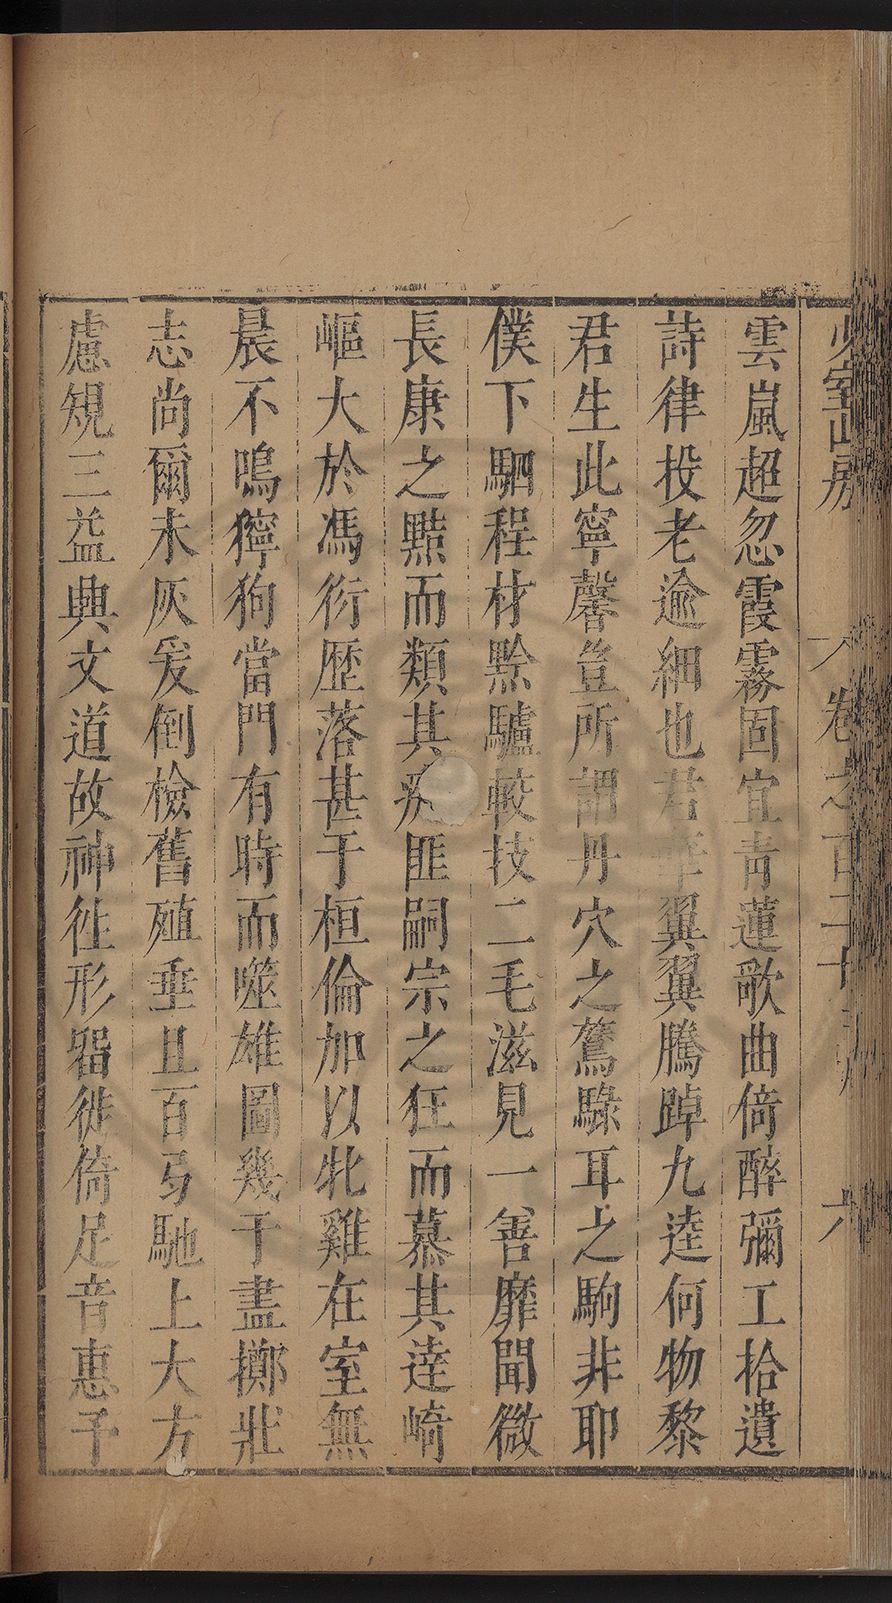 少室山房
卷之百二十
六
雲嵐超忽霞霧固宜青蓮歌曲倚醉彌工拾遺
詩律投老逾細也君家翼翼騰踔九逵何物黎
君生此寧馨豈所謂丹穴之鸑騄耳之駒非耶
僕下駟程材黔驢較技二毛滋見一善靡聞微
長康之黠而類其癡匪嗣宗之狂而慕其達崎
嶇大於馮衍歷落甚于桓倫加以牝雞在室無
晨不鳴獰狗當門有時而噬雄圖幾于盡擲壯
志尚爾未灰爰倒檢舊殖垂且百号馳上大方
慮規三益典文道故神徃形畱徙倚足音惠予